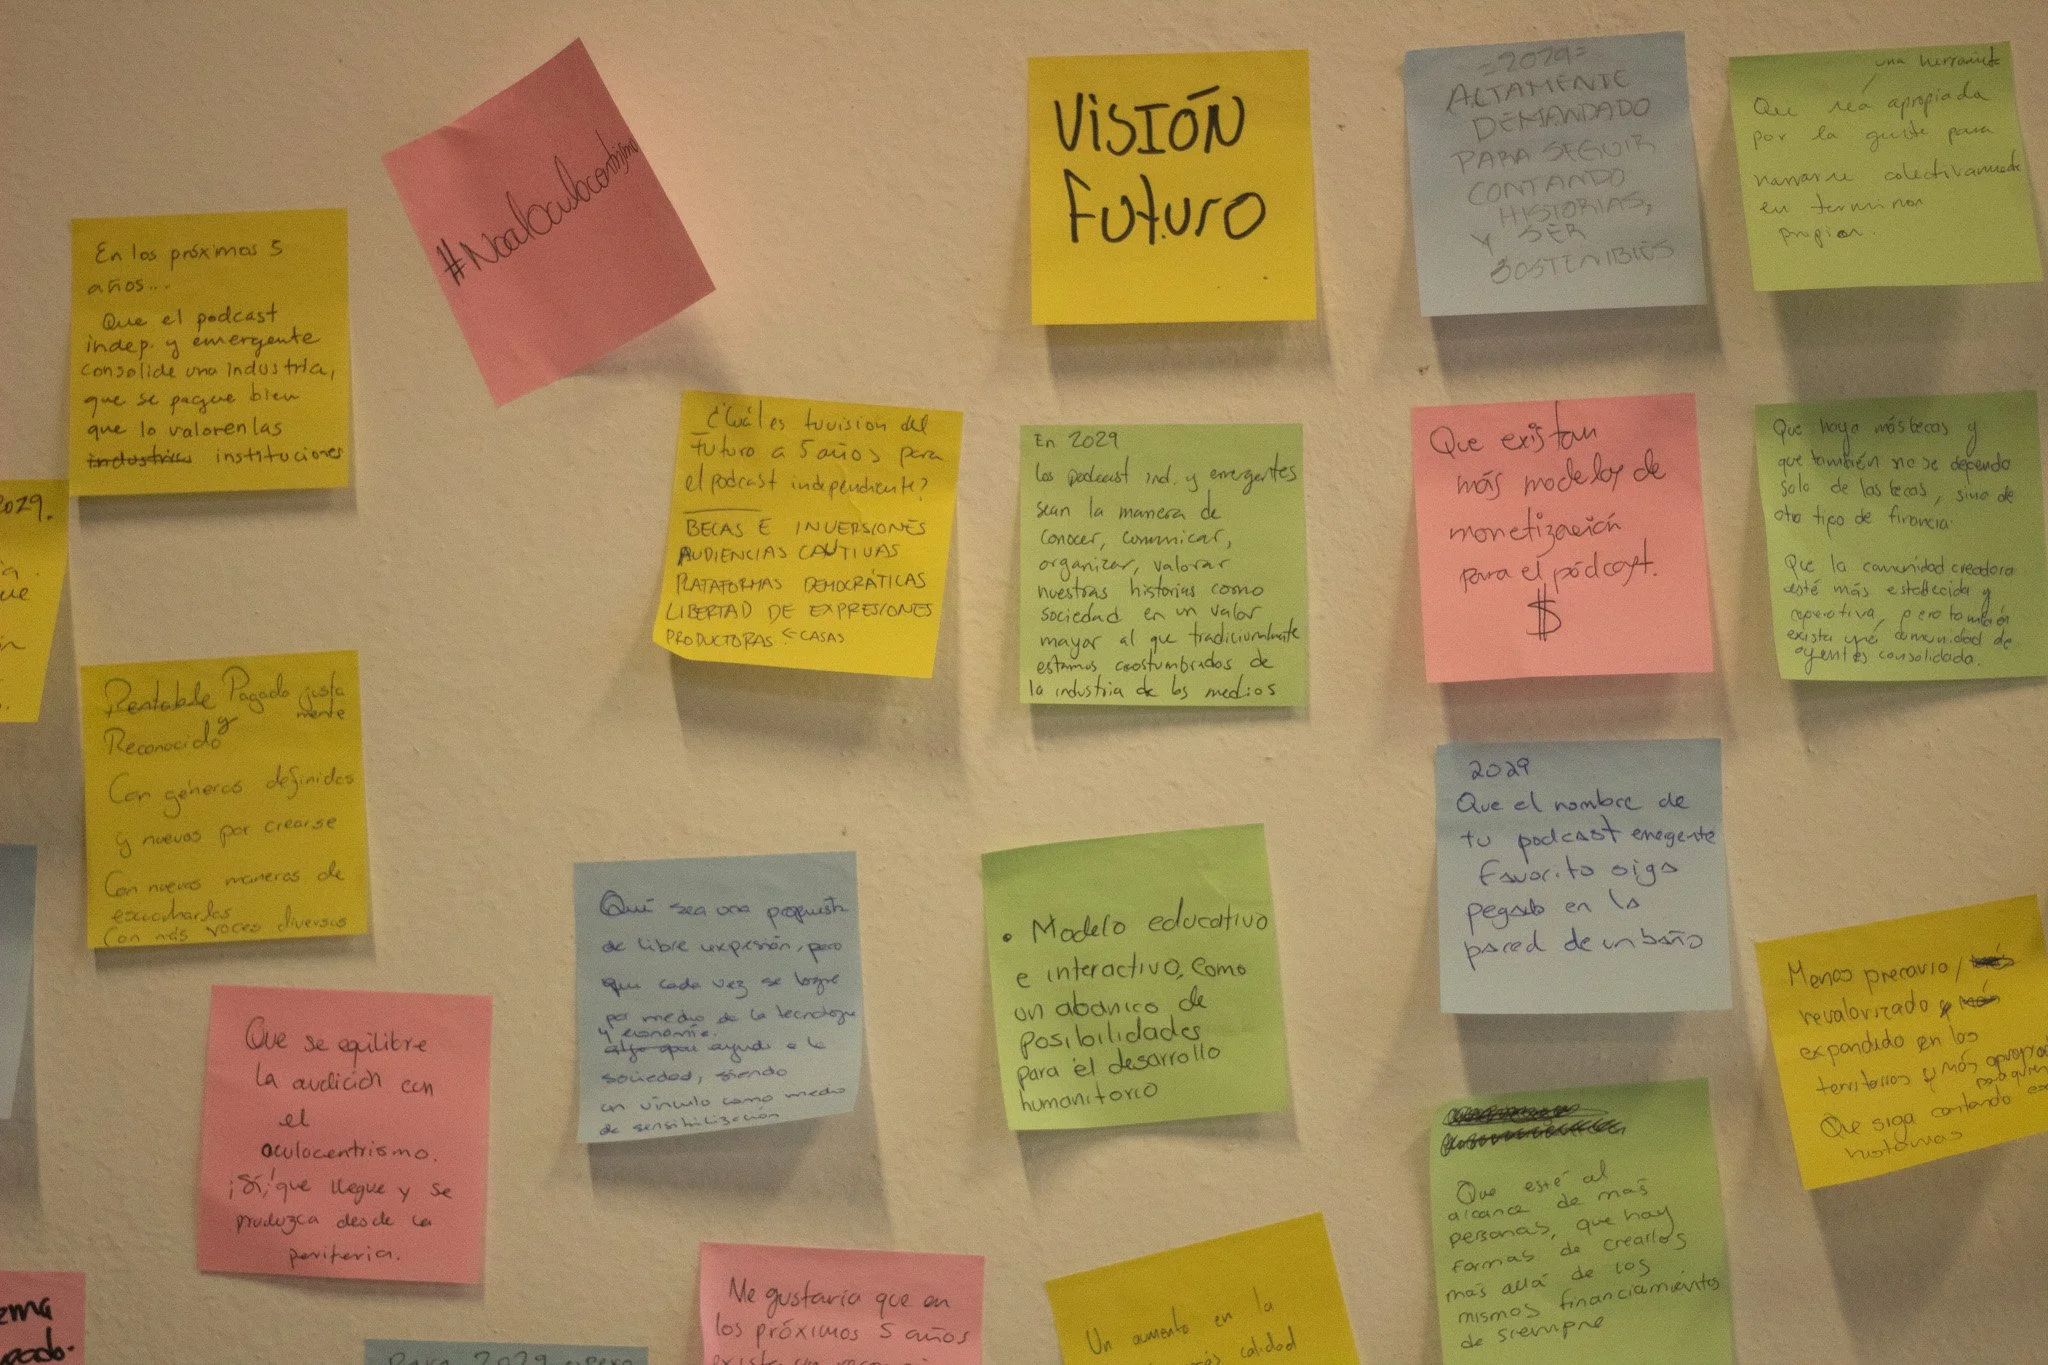 En los próximos 5
años...
Que el podcast
indep. y emergente
consolide una industria,
que se pague bien
que lo valoren las
industria instituciones
#Noaloculocentrismo
VISIÓN
FUTURO
=2029=
ALTAMENTE
DEMANDADO
PARA SEGUIR
CONTANDO
HISTORIAS,
Y SER
SOSTENIBLES
una herramienta
Que sea apropiada
por la gente para
narrarse colectivamente
en terminos
propios.
¿Cuál es tu visión del
futuro a 5 años para
el podcast independiente?
BECAS E INVERSIONES
AUDIENCIAS CAUTIVAS
PLATAFORMAS DEMOCRÁTICAS
LIBERTAD DE EXPRESIONES
PRODUCTORAS CASAS
En 2029
los podcast ind. y emergentes
sean la manera de
conocer, comunicar,
organizar, valorar
nuestras historias como
sociedad en un valor
mayor al que tradicionalmente
estamos acostumbrados de
la industria de los medios
Que existan
más modelos de
monetización
para el pódcast.
$
Que haya más becas y
que también no se dependa
solo de las becas, sino de
otro tipo de financia.
Que la comunidad creadora
esté más establecida y
operativa, pero también
exista una comunidad de
oyentes consolidada.
2029.
Rentable Pagado justa
mente
y
Reconocido
Con géneros definidos
y nuevos por crearse
Con nuevas maneras de
escucharlas
Con más voces diversas
Qué sea una propuesta
de libre expresión, pero
que cada vez se logre
por medio de la tecnología
y economía.
algo que ayude a la
sociedad, siendo
un vínculo como medio
de sensibilización
• Modelo educativo
e interactivo, como
un abanico de
posibilidades
para el desarrollo
humanitario
2029
Que el nombre de
tu podcast emegente
favorito siga
pegado en la
pared de un baño
Menos precario / más
revalorizado y más
expandido en los
territorios y más apropiado
para quien
Que siga contando
historias
Que se equilibre
la audición con
el
oculocentrismo.
¡Sí, que llegue y se
produzca desde la
periferia.
Que esté al
alcance de más
personas, que hay
formas de crearlos
más allá de los
mismos financiamientos
de siempre
Me gustaría que en
los próximos 5 años
Un aumento en la
calidad
Para 2029 espero